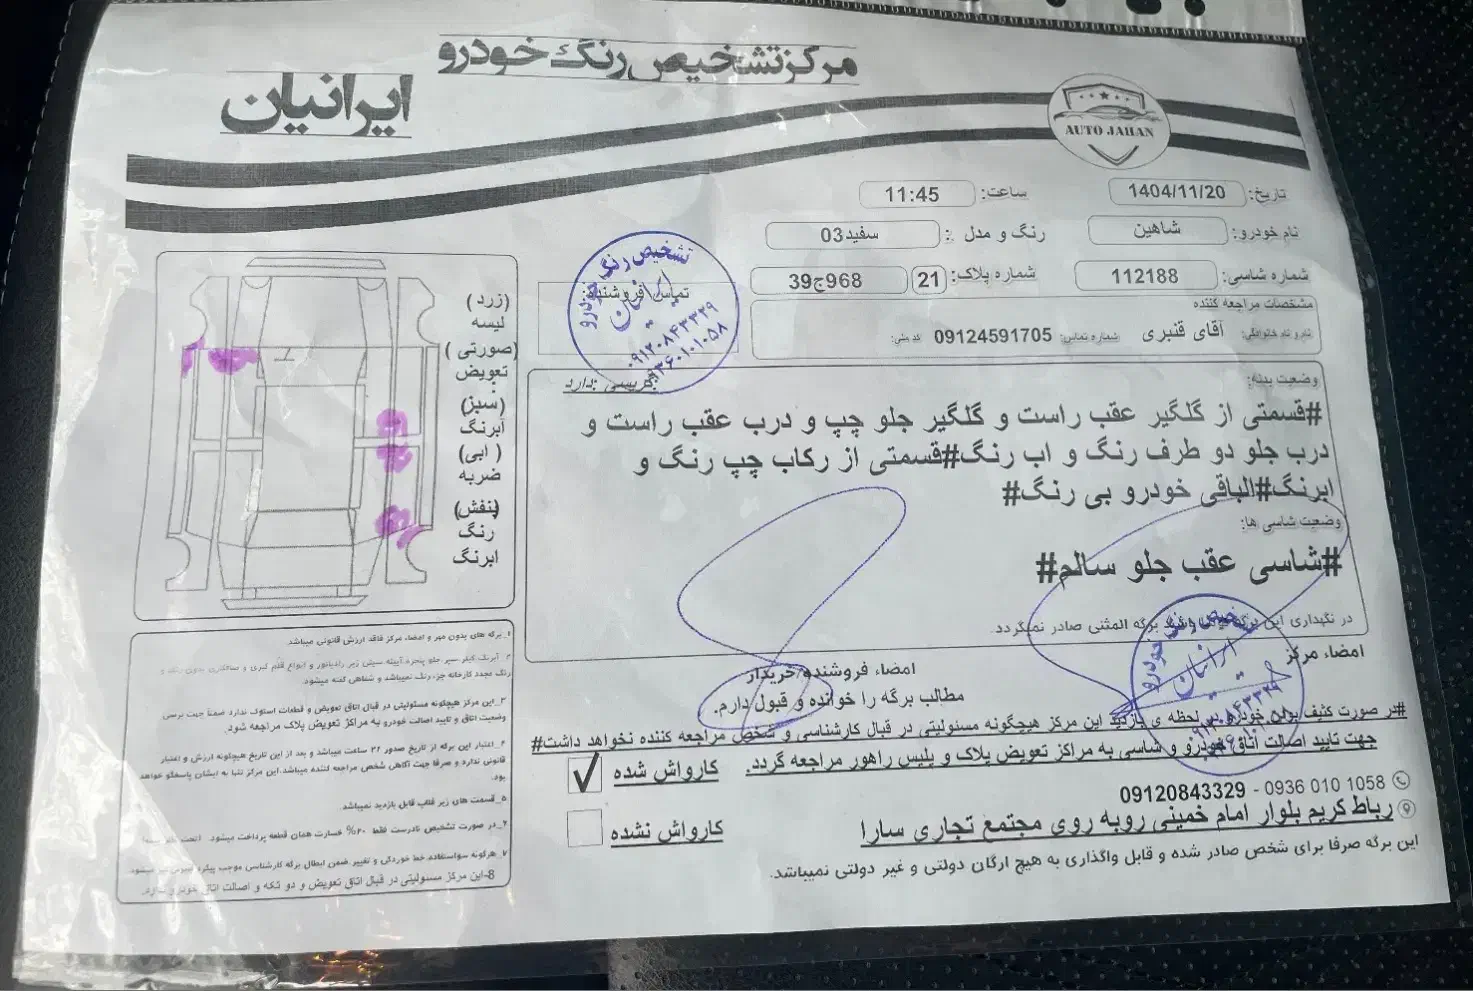 مرکز تشخیص رنگ خودرو
ایرانیان
AUTO JAHAN
تاریخ: 1404/11/20
ساعت: 11:45
نام خودرو: شاهین
رنگ و مدل: سفید03
شماره شاسی: 112188
شماره پلاک: 21 968ج39
مشخصات مراجعه کننده
نام و نام خانوادگی: آقای قنبری شماره تماس: 09124591705 کد ملی:
تماس فروشنده:
تشخیص رنگ خودرو
ایرانیان
۰۹۱۲۰۸۴۳۳۲۹
۰۹۳۶۰۱۰۱۰۵۸
(زرد)
لیسه
(صورتی)
تعویض
(سبز)
آبرنگ
(ابی)
ضربه
(بنفش)
رنگ
ابرنگ
وضعیت بدنه:
دارد
#قسمتی از گلگیر عقب راست و گلگیر جلو چپ و درب عقب راست و
درب جلو دو طرف رنگ و اب رنگ#قسمتی از رکاب چپ رنگ و
ابرنگ#الباقی خودرو بی رنگ#
وضعیت شاسی ها:
#شاسی عقب جلو سالم#
در نگهداری این برگه برگه المثنی صادر نمیگردد.
امضاء مرکز
امضاء فروشنده/خریدار
مطالب برگه را خوانده و قبول دارم.
تشخیص رنگ خودرو
ایرانیان
#در صورت کثیف بودن خودرو در لحظه ی بازدید این مرکز هیچگونه مسئولیتی در قبال کارشناسی و شخص مراجعه کننده نخواهد داشت#
جهت تایید اصالت اتاق خودرو و شاسی به مراکز تعویض پلاک و پلیس راهور مراجعه گردد.
کارواش شده
کارواش نشده
09120843329 - 0936 010 1058
رباط کریم بلوار امام خمینی روبه روی مجتمع تجاری سارا
این برگه صرفا برای شخص صادر شده و قابل واگذاری به هیچ ارگان دولتی و غیر دولتی نمیباشد.
۱_برگه های بدون مهر و امضاء مرکز فاقد ارزش قانونی میباشد.
رنگ مجدد کارخانه جزء رنگ نمیباشد و شفاهی گفته میشود.
۳_این مرکز هیچگونه مسئولیتی در قبال اتاق تعویض و قطعات استوک ندارد ضمنا جهت بررسی
وضعیت اتاق و تایید اصالت خودرو به مراکز تعویض پلاک مراجعه شود.
۴_اعتبار این برگه از تاریخ صدور ۲۴ ساعت میباشد و بعد از این تاریخ هیچگونه ارزش و اعتبار
قانونی ندارد و صرفا جهت آگاهی شخص مراجعه کننده میباشد.این مرکز تنها به ایشان پاسخگو خواهد
بود.
۵_قسمت های زیر قالب قابل بازدید نمیباشد.
۶_در صورت تشخیص نادرست فقط ۲۰% خسارت همان قطعه پرداخت میشود.
۷_هرگونه سواستفاده،خط خوردگی و تغییر ضمن ابطال برگه کارشناسی موجب پیگرد قانونی میشود.
8-این مرکز مسئولیتی در قبال اتاق تعویض و دو تکه و اصالت اتاق خودرو ندارد.